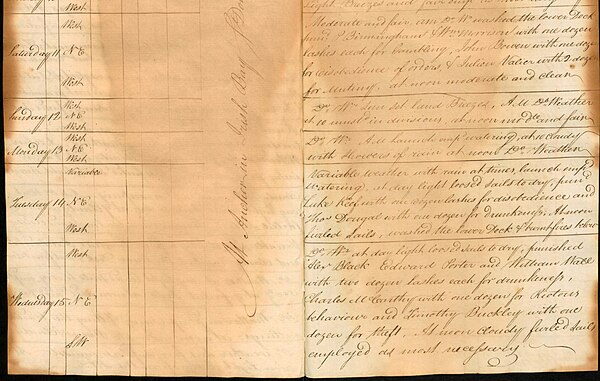 West
West
Saturday 11 N.E
West
West
Sunday 12 N.E
West
West
Monday 13 N.E
West
Variable
Tuesday 14 N.E
West
West
Wednesday 15 N.E
SW
At Anchor in Irish Bay
Light Breezes and
Moderate and fair, am Do Wr washed the lower Deck
pund P. Birmingham & Wm Morrison with one dozen
lashes each for Gambling, John Bowen with one dozen
for disobedience of orders & Julien with 2 dozen
for Mutiny, at noon moderate and clear
Do Wr land Breezes, A.M Do Weather
at 10 in divisions, at noon modte and fair
Do Wr A.M Launch empd watering, at 10 cloudy
with Showers of rain at noon Do Weather
Variable weather with rain at times, launch empd
Watering, at day light loosed Sails to dry, pund
Luke with one dozen lashes for disobedience and
Thos Dougal with one dozen for drunkness, At noon
furled Sails, washed the lower Deck & below
Do Wr at day light loosed Sails to dry, punished
Black Edward Porter and William Wall
with two dozen Lashes each for drunkeness,
Charles McCarthy with one dozen for Riotous
behaviour and Timothy Buckley with one
dozen for theft. At noon cloudy furled Sails
employed as most necessary